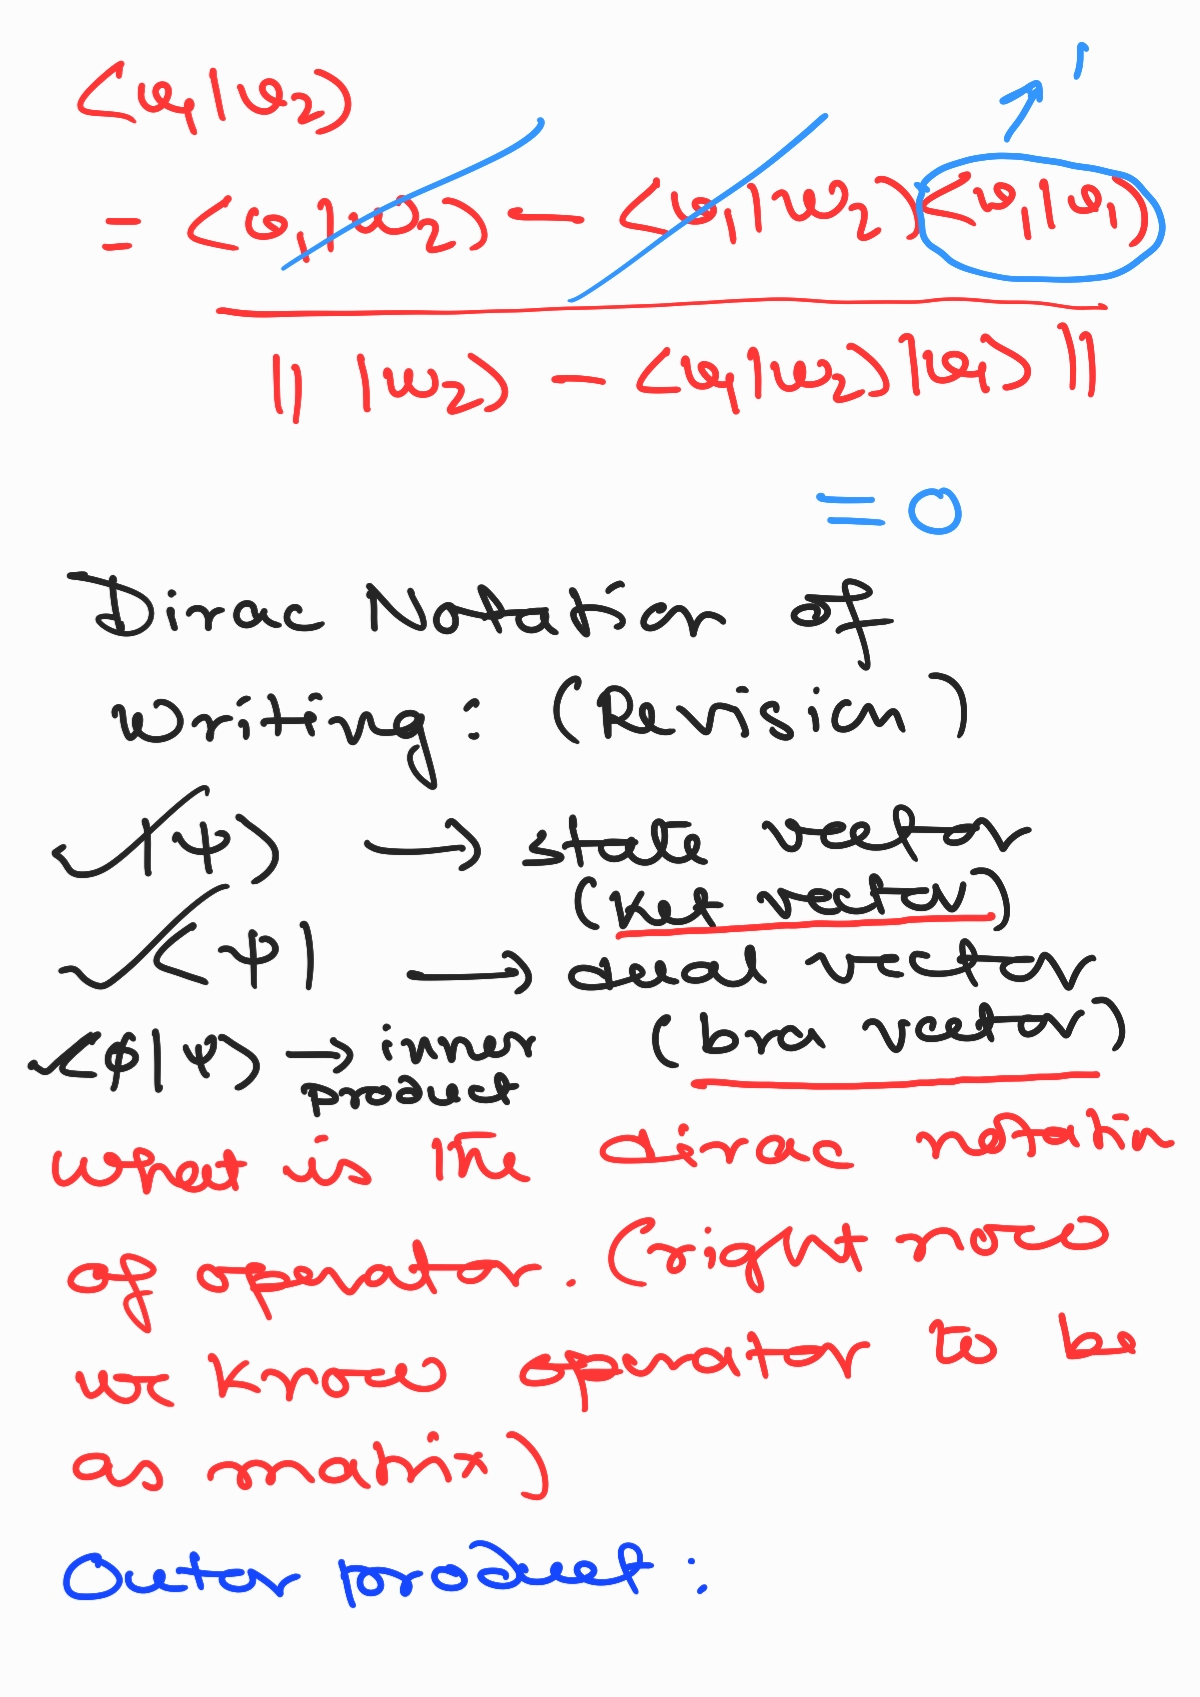 ⟨v₁|v₂⟩
1
= ⟨v₁|w₂⟩ − ⟨v₁|w₂⟩⟨v₁|v₁⟩
|| |w₂⟩ − ⟨v₁|w₂⟩|v₁⟩ ||
= 0
Dirac Notation of
writing: (Revision)
✓ |ψ⟩ → state vector
(ket vector)
✓ ⟨ψ| → dual vector
(bra vector)
✓ ⟨ϕ|ψ⟩ → inner
product
what is the dirac notatin
of operator. (right now
we know operator to be
as matrix)
Outer product: